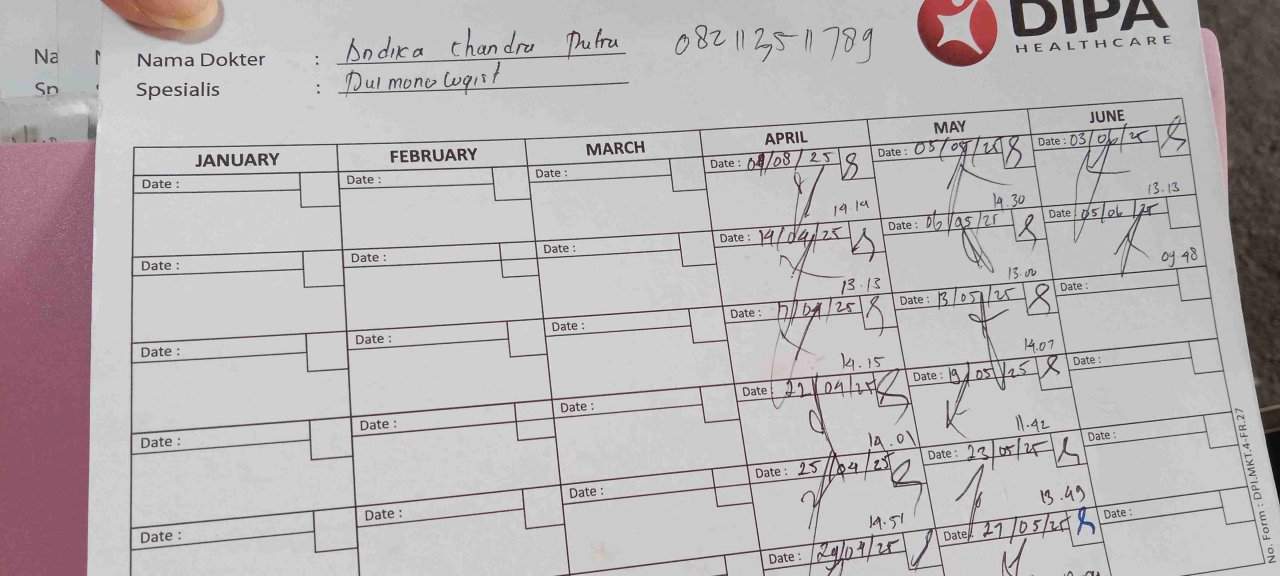 DIPA
HEALTHCARE
Nama Dokter : Andika Chandra Putra 082112511789
Spesialis : Pulmonologist
JANUARY FEBRUARY MARCH APRIL MAY JUNE
Date : Date : Date : Date : 09/08/25 Date : 03/05/25 Date : 03/06/25
14.14 14.30 13.13
Date : Date : Date : Date : 14/04/25 Date : 06/05/25 Date : 05/06/25
13.13 13.00 09.48
Date : Date : Date : Date : 17/04/25 Date : 13/05/25 Date :
14.15 14.07
Date : Date : Date : Date : 22/04/25 Date : 19/05/25 Date :
14.01 11.42
Date : Date : Date : Date : 25/04/25 Date : 23/05/25 Date :
14.51 13.49
Date : 29/04/25 Date : 27/05/25 Date :
No. Form : DPI.MKT.4-FR.27